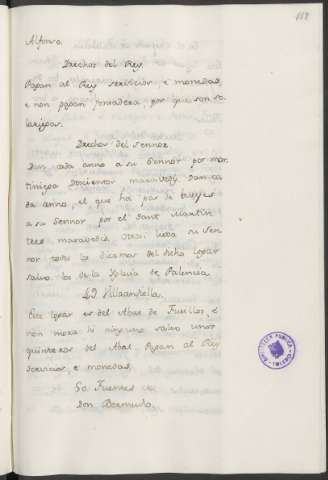 118
Alfonso.
Drechos del Rey.
Pagan al Rey servicios, e monedas,
e non pagan fonsadera, por que son so
lariegos.
Drechos del Sennor.
Dan cada anno a su Sennor por mar
tiniega trecientos maravedis. Dan ca
da anno, el que hai par de bueyes
a su Sennor por el Sant Martin
tres maravedis. Otrosi lieva su Sen
nor todos los diezmos del dicho logar
salvo los de la Iglesia de Palencia.
59 Villaantella.
Este logar es del Abat de Fusillos, e
non mora hi ninguno salvo unos
quinteros del Abat. Pagan al Rey
servicios, e monedas.
60 Fuentes de
Don Bermudo.
BIBLIOTECA PUBLICA